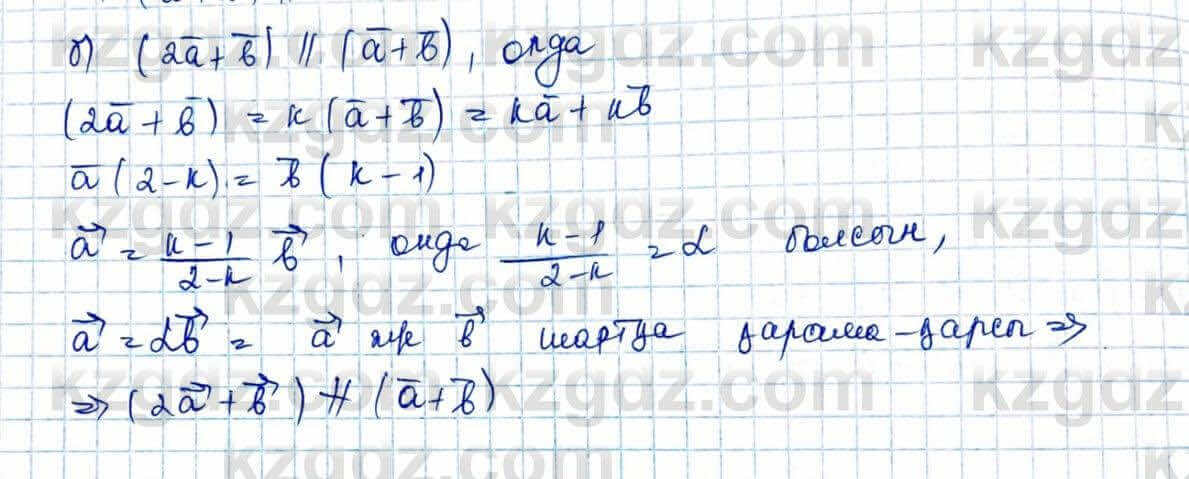 б) (2a̅ + b̅) // (a̅ + b̅), онда
(2a̅ + b̅) = k (a̅ + b̅) = ka̅ + kb̅
a̅ (2-k) = b̅ (k-1)
a⃗ = (k-1)/(2-k) b⃗, онда (k-1)/(2-k) = α болсын,
a⃗ = αb⃗ = a⃗ же b⃗ шартқа қарама-қарсы ⇒
⇒ (2a⃗ + b⃗) ∦ (a̅ + b̅)
kzgdz.com